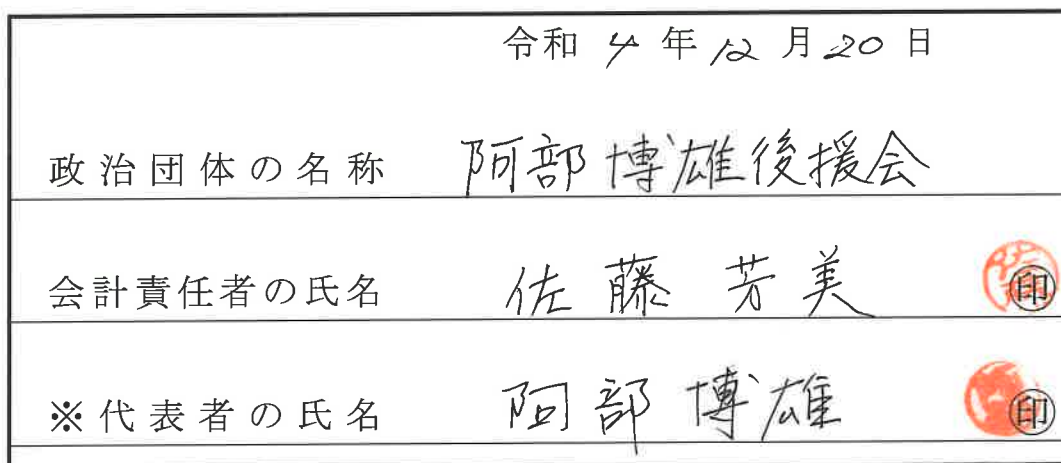 令和 4 年 12 月 20 日
政治団体の名称 阿部博雄後援会
会計責任者の氏名 佐藤 芳美 ㊞
※代表者の氏名 阿部 博雄 ㊞